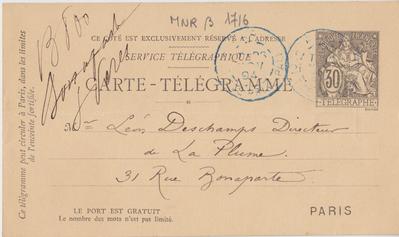 MNR β 1716
CE CÔTÉ EST EXCLUSIVEMENT RÉSERVÉ À L'ADRESSE
SERVICE TÉLÉGRAPHIQUE
CARTE-TÉLÉGRAMME
POSTES
30
TÉLÉGRAPHE
Mr Léon Deschamps Directeur
de La Plume.
31 Rue Bonaparte
PARIS
LE PORT EST GRATUIT
Le nombre des mots n'est pas limité.
Ce télégramme peut circuler à Paris, dans les limites
de l'enceinte fortifiée.